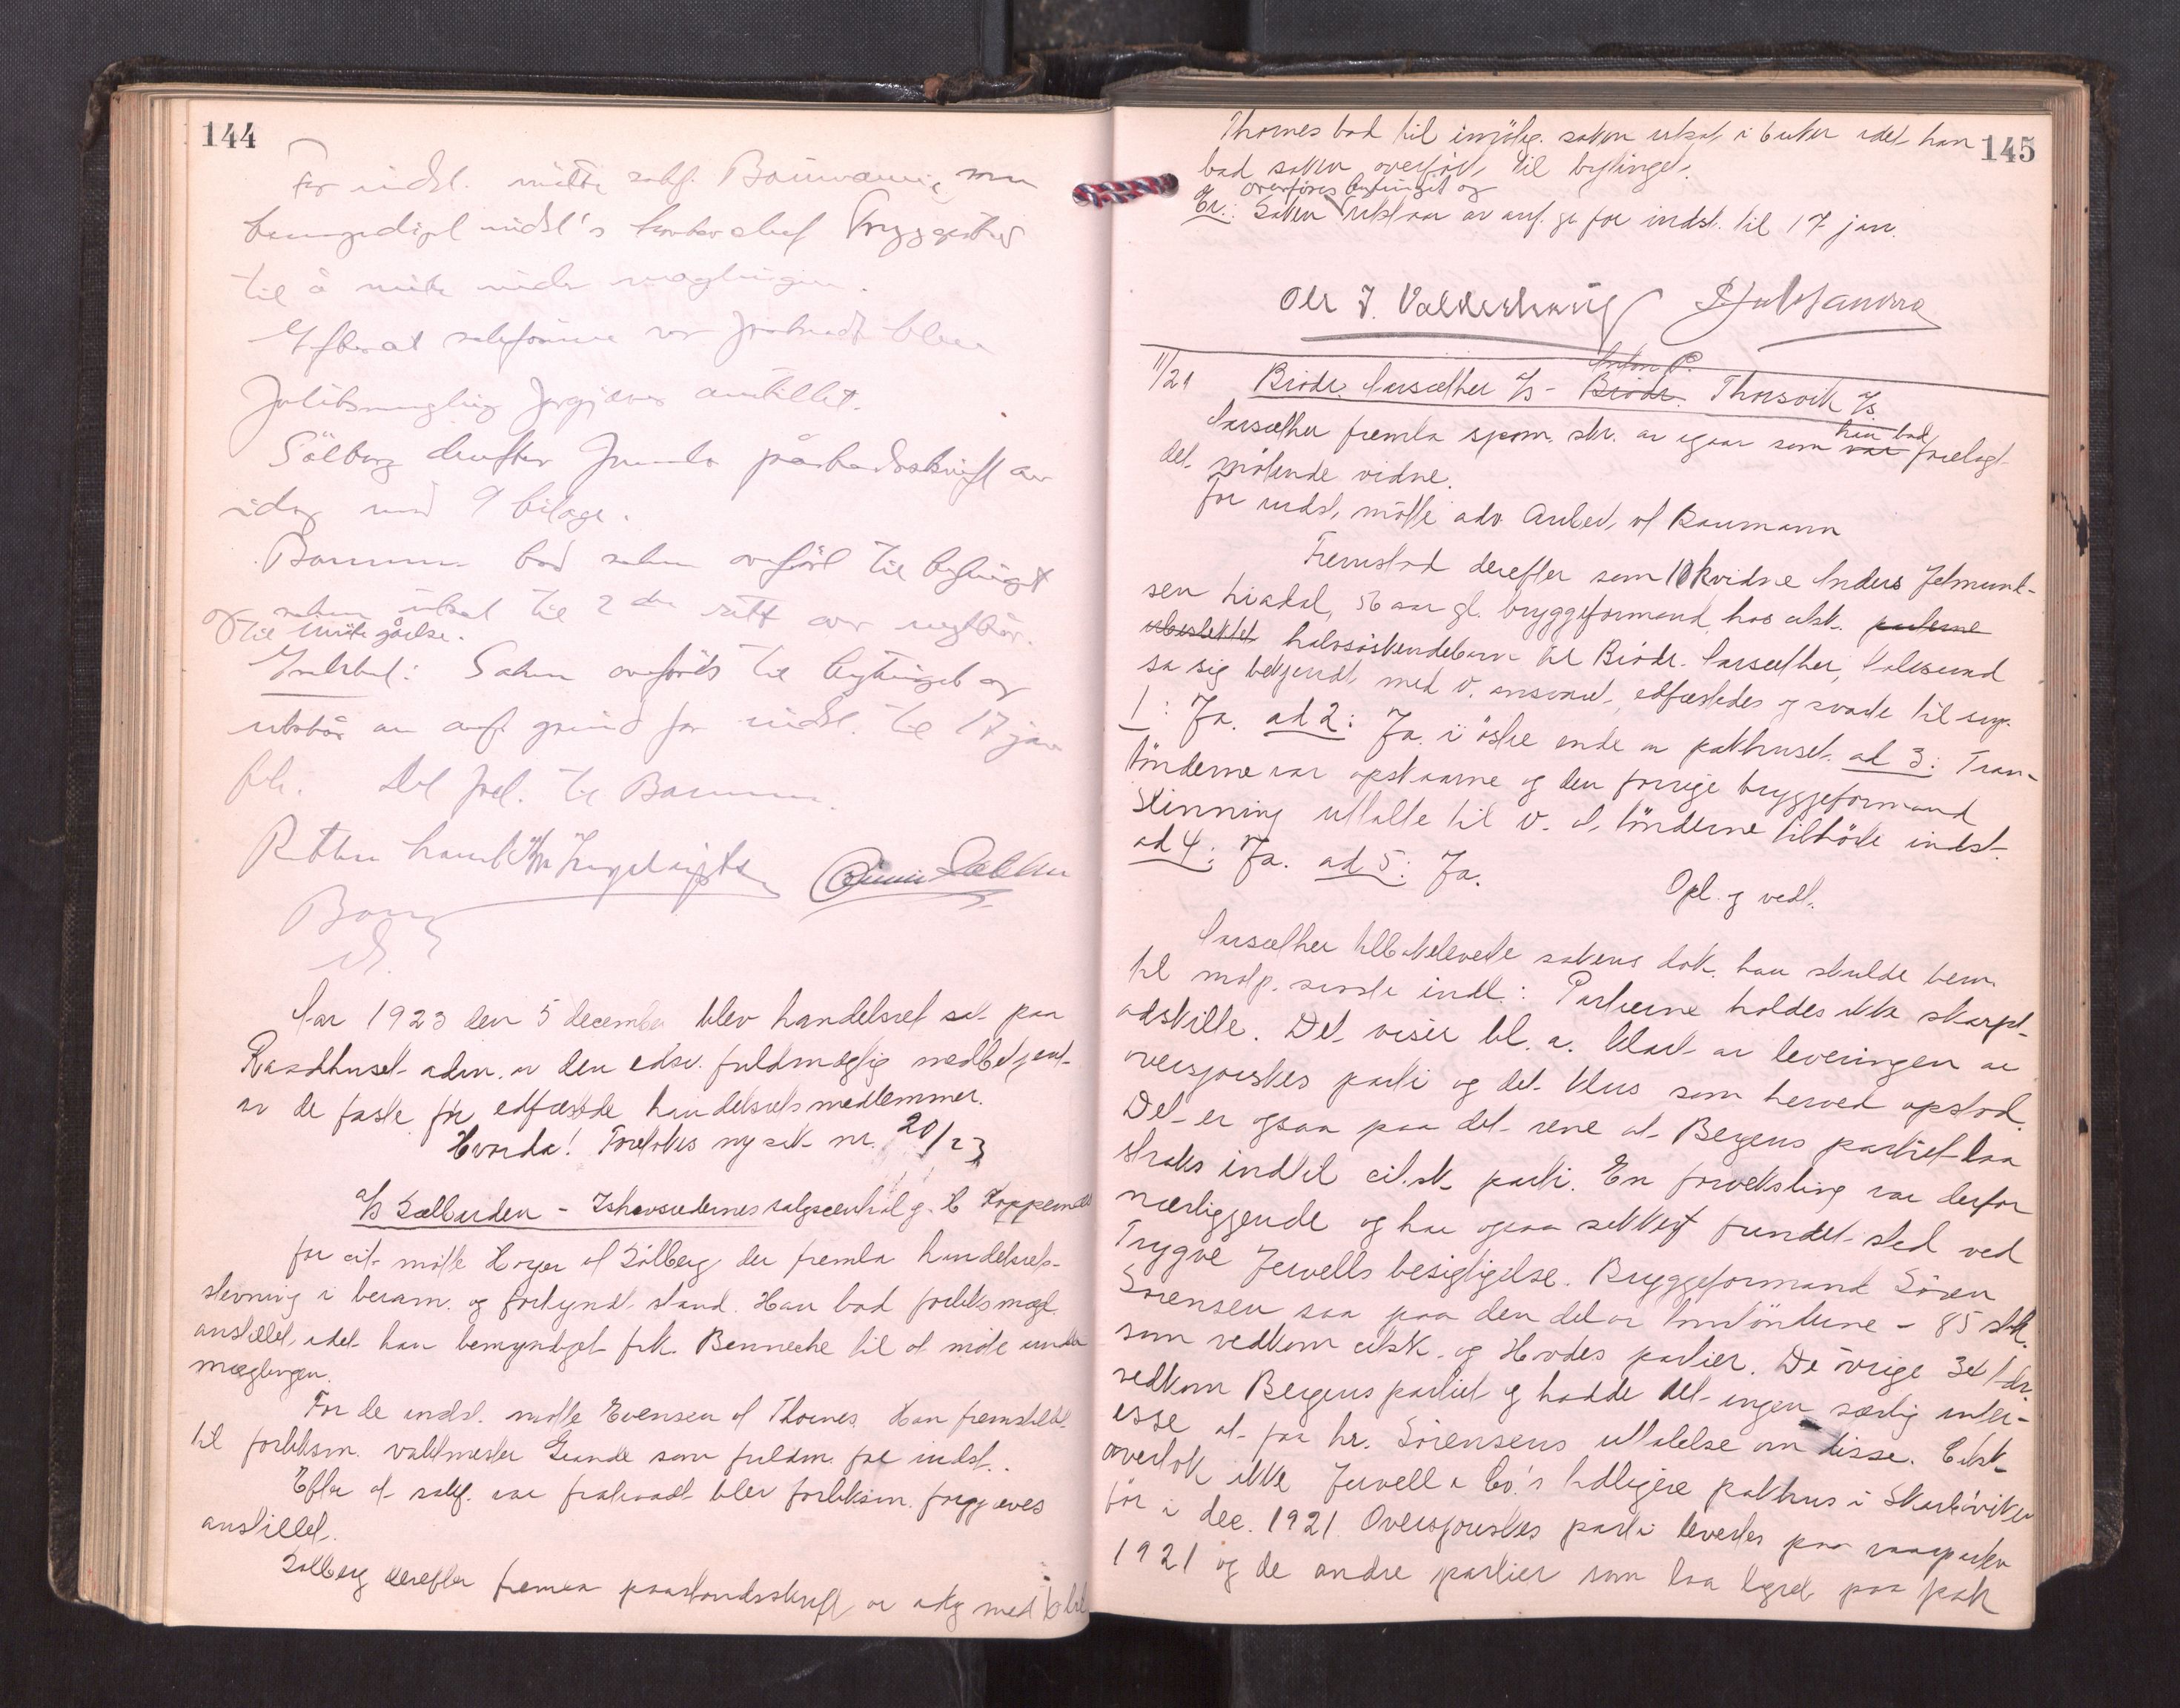 144
For indst. møtte sakf. Baumann, som
bemyndiget indst's kontorchef Bryggesther
til å møte under mæglingen.
Efterat sakførerne var fratraadt blev
forliksmægling forgjæves anstillet.
Sölberg derefter fremla påstandsskrift av
idag med 9 bilage.
Baumann bad saken overført til bytinget
og saken utsat til 2den rett over nyttår.
til imötegåelse.
Kendelse: Saken overføres til bytinget og
utstår av anf. grund for indst. til 17 jan
Dok. frel. til Baumann.
Retten hævet
Aar 1923 den 5 december blev handelsret sat paa
Raadhuset adm. av den edsv. fuldmægtig medbetjent
av de faste før edfæstede handelsretsmedlemmer.
Hvorda! Foretokes ny sak nr. 20/23
A/S Sælbarden - Ishavsredernes salgscentral g. C Koppernæs
for cit. møtte Hoyer af Sölberg der fremla handelsrets-
stevning i beram. og forkyndt stand. Han bad forliksmægl.
anstillet, idet han bemyndiget frk. Benneche til at møte under
mæglingen.
For de indst. møtte Evensen af Thornes. Han fremstillet
til forliksm. vaktmester Grande som fuldm. for indst.
Efter at sakf. var fratraadt blev forliksm. forgjæves
anstillet.
Solberg derefter fremla paastandsskrift av idag med 6 bil
145
Thornes bad til imøteg. saken utsat i 6 uker idet han
bad saken overført til bytinget.
overføres bytinget og
Er.: Saken utstaar av anf. gr for indst. til 17 jan.
Ole J. Valderhaug
11/21 Brødr. Aarsæther A/S - Brødr. Thorsvik A/S.
Anton P.
Aarsæther fremla spørn. skr. av igaar som var han bad forelagt
det møtende vidne.
for indst. møtte adv. Anbert, af Baumann
Fremstod derefter som 10k vidne Anders Jetmund-
sen Liadal, 56 aar gl. bryggeformand hos citsk. parterne
ubeslektet halvsöskendebarn til Brødr. Aarsæther, Aalesund
sa sig bekjendt med v. ansvaret, edfæstedes og svarte til sug.
1: Ja. ad 2: Ja. i østre ende av pakhuset. ad 3: Tran-
tønderne var opskaarne og den forrige bryggeformand
Skinning uttalte til v. at tønderne tilhørte indst.
ad 4: Ja. ad 5: Ja.
Opl. og vedt.
Aarsæther tilbakeleverte sakens dok. han skulde bem.
til motp. sinste indl.: Partierne holdes ikke skarpt
adskilte. Det viser bl. a. klart av leveringen av
oversjoiskes parti og det klus som herved opstod.
Det er ogsaa paa det rene at Bergens partiet laa
straks indtil cit.sk. parti. En forveksling var derfor
nærliggende og har ogsaa sikkert fundet sted ved
Trygve Jervells besigtigelse. Bryggeformand Søren
Sørensen saa paa den del av trantønderne - 85 stk.
som vedkom citsk. og Hordes partier. De øvrige 3et tdr.
vedkom Bergens partiet og hadde det ingen særlig inter-
esse at faa hr. Sørensens uttalelse om disse. Citsk
overtok ikke Jervell & Co.'s tidligere pakhus i Skarbøviken
før i dec. 1921. Oversjoiskes parti levertes paa vaarparten
1921 og de andre partier som laa lagret paa pak